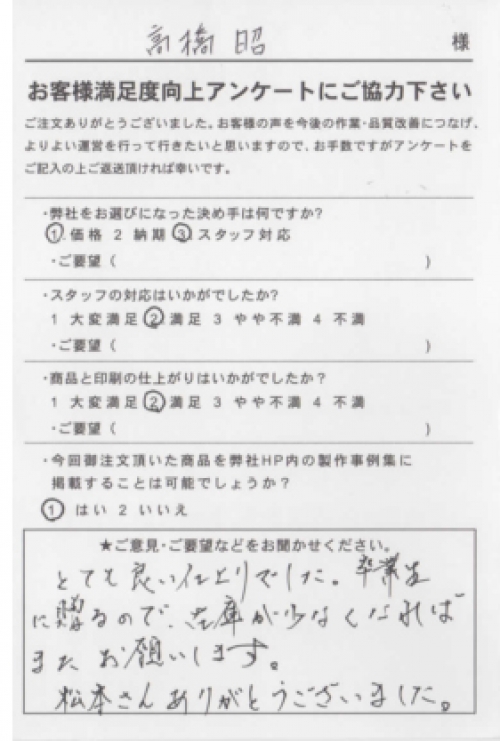 高橋 昭 様
お客様満足度向上アンケートにご協力下さい
ご注文ありがとうございました。お客様の声を今後の作業・品質改善につなげ、
よりよい運営を行って行きたいと思いますので、お手数ですがアンケートを
ご記入の上ご返送頂ければ幸いです。
・弊社をお選びになった決め手は何ですか?
1.価格 2 納期 3.スタッフ対応
・ご要望( )
・スタッフの対応はいかがでしたか?
1 大変満足 2 満足 3 やや不満 4 不満
・ご要望( )
・商品と印刷の仕上がりはいかがでしたか?
1 大変満足 2 満足 3 やや不満 4 不満
・ご要望( )
・今回御注文頂いた商品を弊社HP内の製作事例集に
掲載することは可能でしょうか?
1 はい 2 いいえ
★ご意見・ご要望などをお聞かせください。
とても良い仕上りでした。卒業生
に贈るので、在庫が少なくなれば
またお願いします。
松本さんありがとうございました。